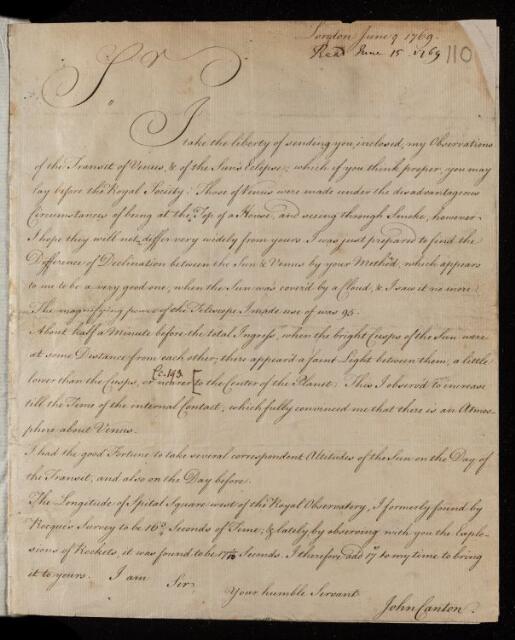 London June 9 1769.
Read June 15 1769 110
Sr
I take the liberty of sending you, enclosed, my Observations
of the Transit of Venus, & of the Sun's Eclipse; which if you think proper, you may
lay before the Royal Society: Those of Venus were made under the disadvantageous
Circumstances of being at the Top of a House, and seeing through Smoke, however
I hope they will not differ very widely from yours. I was just prepared to find the
Difference of Declination between the Sun & Venus by your Method, which appears
to me to be a very good one; when the Sun was cover'd by a Cloud, & I saw it no more.
The magnifying power of the Telescope I made use of was 95.
About half a Minute before the total Ingress, when the bright Cusps of the Sun were
at some Distance from each other; there appear'd a faint Light between them, a little
lower than the Cusps, or nearer [to the Center of the Planet: This I observ'd to increase
till the Time of the internal Contact, which fully convinced me that there is an Atmos-
phere about Venus.
I had the good Fortune to take several correspondent Altitudes of the Sun on the Day of
the Transit, and also on the Day before.
The Longitude of Spital Square west of the Royal Observatory, I formerly found by
Rocque's Survey to be 16 Seconds of Time; & lately by observing with you the Explo-
sions of Rockets, it was found to be Seconds. I therefore add 17" to my time to bring
it to yours. I am Sir,
Your humble Servant
John Canton.